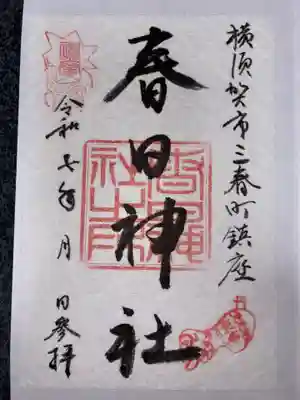 横須賀市三春町鎮座
春日神社
令和七年 月 日参拝